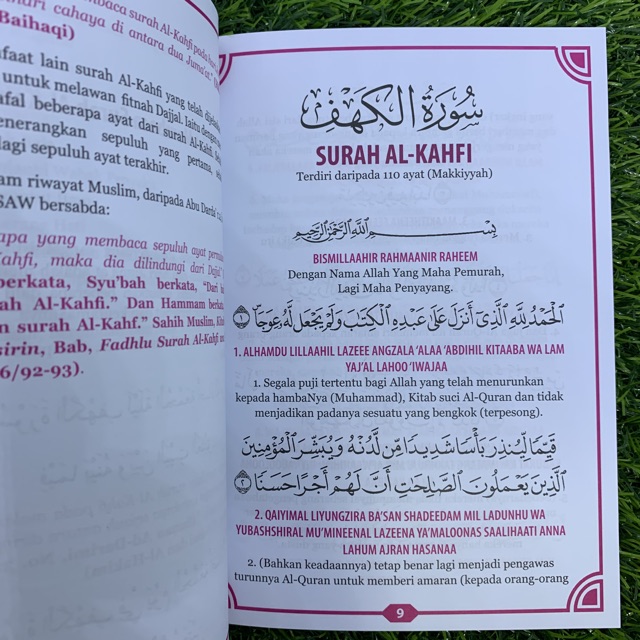 mbaca surah Al-Kahfi pada hari
hari cahaya di antara dua Jumaat."
Baihaqi)
faat lain surah Al-Kahfi yang telah dijelaskan
untuk melawan fitnah Dajjal. Iaitu dengan
afal beberapa ayat dari surah Al-Kahfi.
enerangkan sepuluh yang pertama,
lagi sepuluh ayat terakhir.
am riwayat Muslim, daripada Abu Darda'
SAW bersabda:
apa yang membaca sepuluh ayat
Kahfi, maka dia dilindungi dari Dajjal
berkata, Syu'bah berkata, "Dari
ah Al-Kahfi." Dan Hammam berkata,
n surah Al-Kahf." Sahih Muslim,
sirin, Bab, Fadhlu Surah Al-Kahfi
6/92-93).
سُورَةُ الكَهْفِ
SURAH AL-KAHFI
Terdiri daripada 110 ayat (Makkiyyah)
بِسْمِ اللَّهِ الرَّحْمَٰنِ الرَّحِيمِ
BISMILLAAHIR RAHMAANIR RAHEEM
Dengan Nama Allah Yang Maha Pemurah,
Lagi Maha Penyayang.
الْحَمْدُ لِلَّهِ الَّذِي أَنزَلَ عَلَىٰ عَبْدِهِ الْكِتَابَ وَلَمْ يَجْعَل لَّهُ عِوَجًا ۝١
1. ALHAMDU LILLAAHIL LAZEEE ANGZALA 'ALAA 'ABDIHIL KITAABA WA LAM
YAJ'AL LAHOO 'IWAJAA
1. Segala puji tertentu bagi Allah yang telah menurunkan
kepada hambaNya (Muhammad), Kitab suci Al-Quran dan tidak
menjadikan padanya sesuatu yang bengkok (terpesong).
قَيِّمًا لِّيُنذِرَ بَأْسًا شَدِيدًا مِّن لَّدُنْهُ وَيُبَشِّرَ الْمُؤْمِنِينَ
الَّذِينَ يَعْمَلُونَ الصَّالِحَاتِ أَنَّ لَهُمْ أَجْرًا حَسَنًا ۝٢
2. QAIYIMAL LIYUNGZIRA BA'SAN SHADEEDAM MIL LADUNHU WA
YUBASHSHIRAL MU'MINEENAL LAZEENA YA'MALOONAS SAALIHAATI ANNA
LAHUM AJRAN HASANAA
2. (Bahkan keadaannya) tetap benar lagi menjadi pengawas
turunnya Al-Quran untuk memberi amaran (kepada orang-orang
9